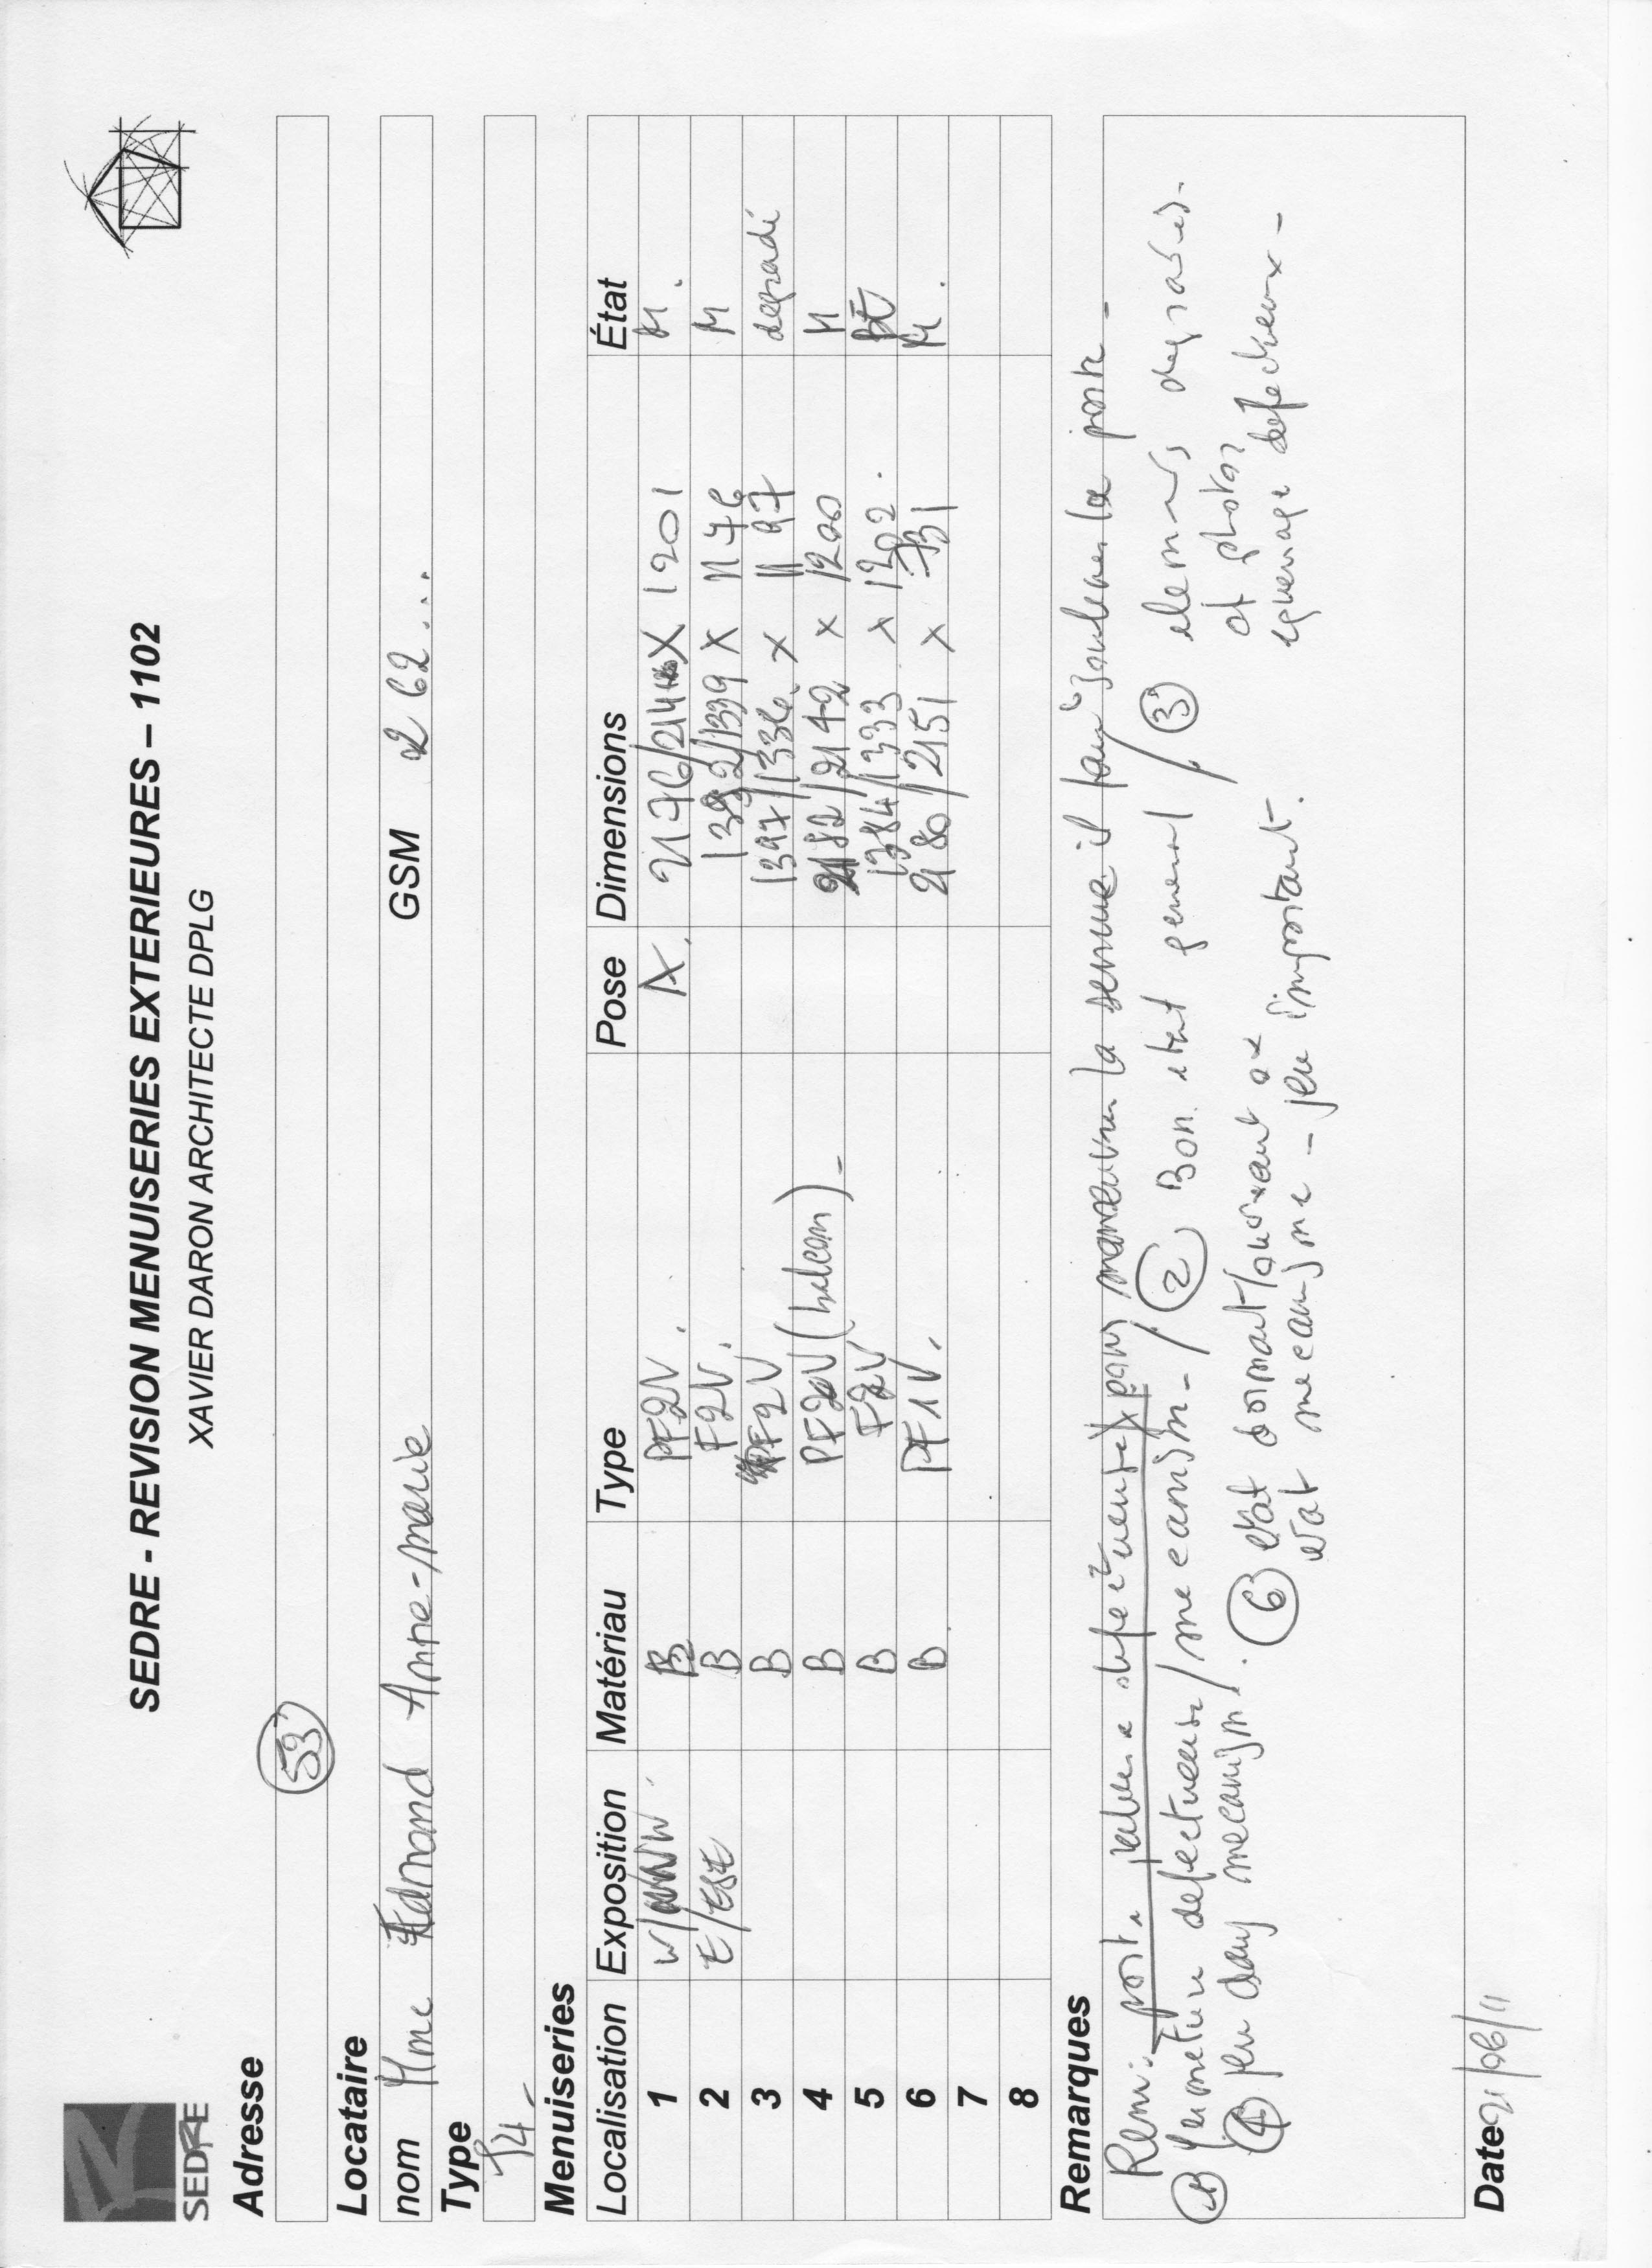 SEDRE
SEDRE - REVISION MENUISERIES EXTERIEURES – 1102
XAVIER DARON ARCHITECTE DPLG
Adresse
53
Locataire
nom Mme Edmond Anne-marie GSM 262...
Type
T4.
Menuiseries
Localisation Exposition Matériau Type Pose Dimensions État
1 W/ B PF2V. A. 2176/214 X 1201 M.
2 E/Est B F2V. 1392/1339 X 1176 M
3 B F2V 1397/1336 x 1197 degradé
4 B PF2V (balcon) - 2182/2142 x 1200 M
5 B F2V 1384/1333 x 1202. BE
6 B PF1V. 2180/2151 x 731 M.
7
8
Remarques
porte defectueuse pour manœuvrer la serrure il faut soulever la porte -
fermeture defectueuse/mecanism - / 2 Bon etat general / 3 elements degradés -
4 jeu dans mecanism. 6 etat dormant/ouvrant cf photos
etat mecanisme - jeu important. equerrage defectueux -
Date 21/06/11